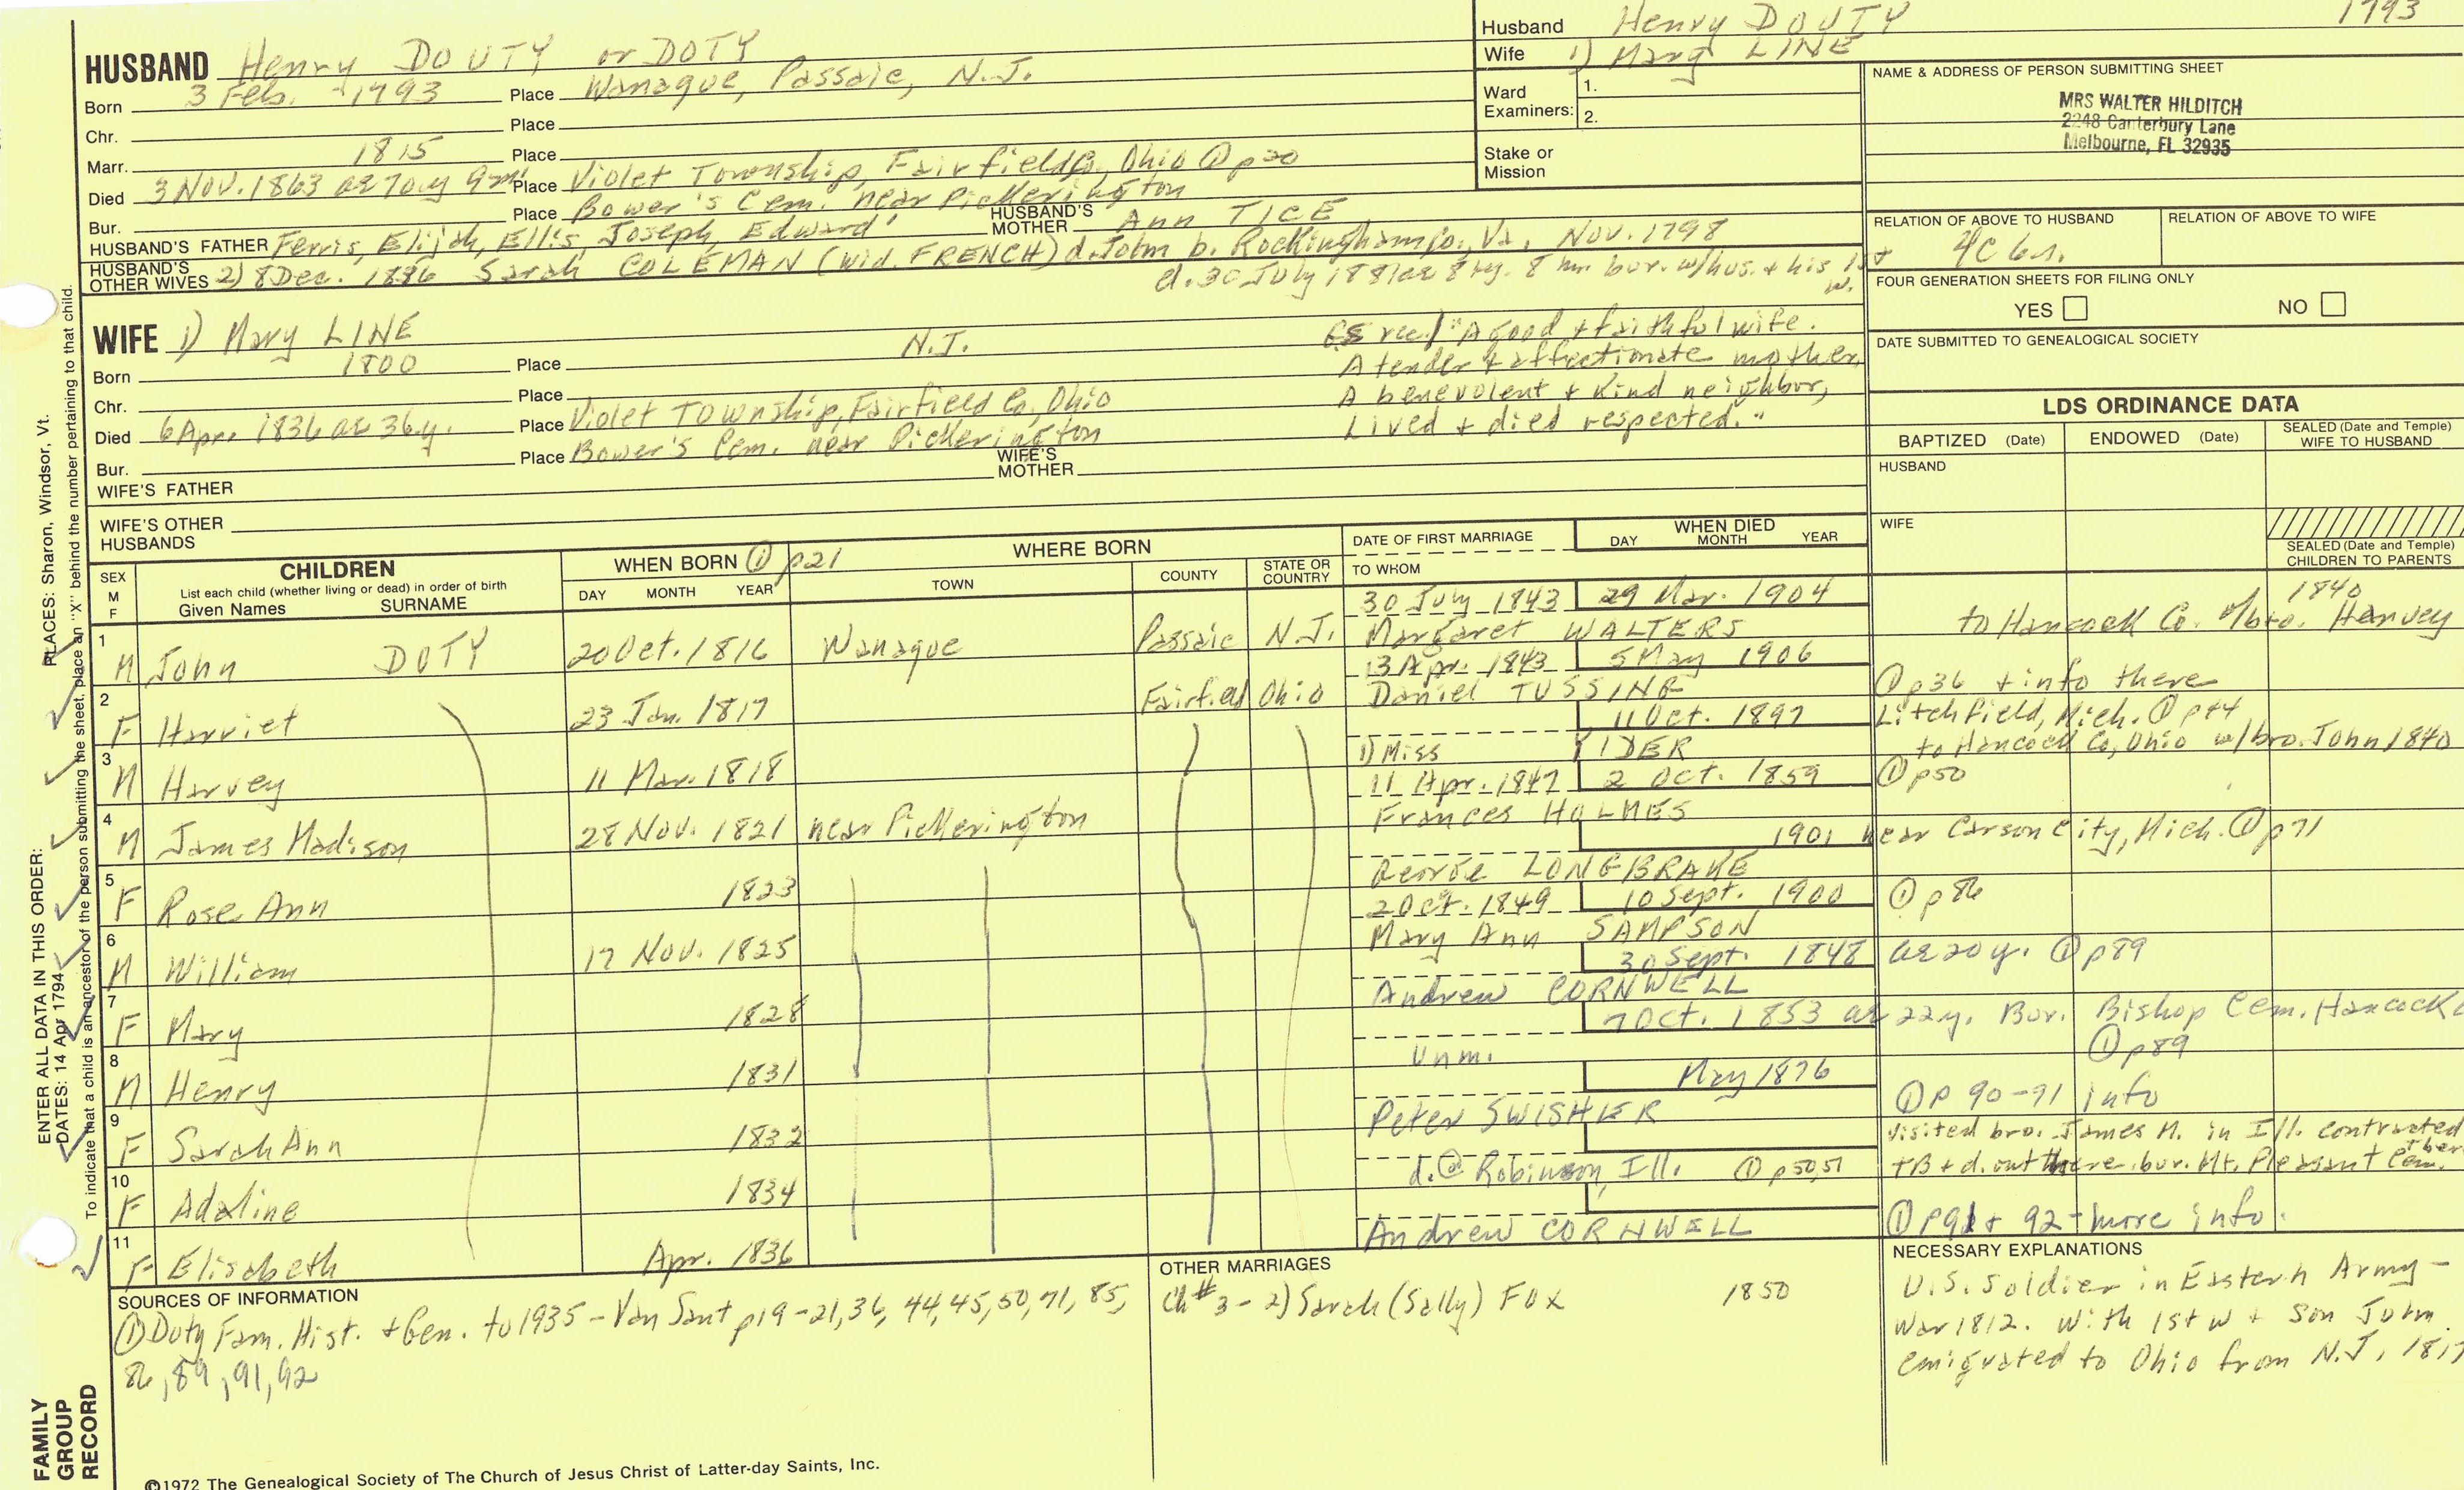 Husband Henry DOUTY 1793
Wife 1) Mary LINE
Ward Examiners: 1.
2.
Stake or Mission
NAME & ADDRESS OF PERSON SUBMITTING SHEET
MRS WALTER HILDITCH
2248 Canterbury Lane
Melbourne, FL 32935
RELATION OF ABOVE TO HUSBAND
RELATION OF ABOVE TO WIFE
FOUR GENERATION SHEETS FOR FILING ONLY
YES NO
DATE SUBMITTED TO GENEALOGICAL SOCIETY
LDS ORDINANCE DATA
BAPTIZED (Date) ENDOWED (Date) SEALED (Date and Temple) WIFE TO HUSBAND
HUSBAND
WIFE
SEALED (Date and Temple) CHILDREN TO PARENTS
HUSBAND Henry DOUTY or DOTY
Born 3 Feb. 1793 Place Wanaque, Passaic, N.J.
Chr. Place
Marr. 1815 Place
Died 3 Nov. 1863 ae 70y 9m Place Violet Township, Fairfield Co., Ohio ① p20
Bur. Place Bower's Cem. near Pickerington
HUSBAND'S FATHER Ferris, Elijah, Ellis, Joseph, Edward HUSBAND'S MOTHER Ann TICE
HUSBAND'S OTHER WIVES 2) 8 Dec. 1836 Sarah COLEMAN (wid. FRENCH) d. John b. Rockingham Co., Va. Nov. 1798
d. 30 July 1881 ae 8 hm. bur. w/hus. + his 1st w.
WIFE 1) Mary LINE
Born 1800 Place N.J.
Chr. Place
Died 6 Apr. 1836 ae 36y. Place Violet Township, Fairfield Co., Ohio
Bur. Place Bower's Cem. near Pickerington
GS rec/ "A good + faithful wife.
A tender + affectionate mother,
A benevolent + kind neighbor,
Lived + died respected."
WIFE'S FATHER WIFE'S MOTHER
WIFE'S OTHER HUSBANDS
SEX M F
CHILDREN
List each child (whether living or dead) in order of birth
Given Names SURNAME
WHEN BORN ① p21
DAY MONTH YEAR
WHERE BORN
TOWN COUNTY STATE OR COUNTRY
DATE OF FIRST MARRIAGE
TO WHOM
WHEN DIED
DAY MONTH YEAR
1 M John DOTY 20 Oct. 1816 Wanaque Passaic N.J. 30 July 1843 29 Mar. 1904 Margaret WALTERS 1840 to Hancock Co. w/bro. Harvey
2 F Harriet 23 Jan. 1817 Fairfield Ohio 13 Apr. 1843 5 May 1906 Daniel TUSSING ① p36 + info there
3 M Harvey 11 Mar. 1818 11 Oct. 1897 1) Miss YIDER Litchfield, Mich. ① p44 to Hancock Co, Ohio w/bro. John 1840
4 M James Madison 28 Nov. 1821 near Pickerington 11 Apr. 1847 2 Oct. 1859 Frances HOLMES ① p50
5 F Rose Ann 1823 1901 George LONGBRAKE near Carson City, Mich. ① p71
6 M William 17 Nov. 1825 2 Oct. 1849 10 Sept. 1900 Mary Ann SAMPSON ① p86
7 F Mary 1828 30 Sept. 1848 Andrew CORNWELL ae 20 y. ① p89
8 M Henry 1831 7 Oct. 1853 ae 22y. Bur. Bishop Cem. Hancock Unm. ① p89
9 F Sarah Ann 1832 May 1876 Peter SWISHER ① p 90-91 info
10 F Adaline 1834 d. @ Robinson, Ill. ① p50,51 Visited bro. James M. in Ill. contracted TB + d. out there. bur. Mt. Pleasant Cem. there
11 F Elisabeth Apr. 1836 Andrew CORNWELL ① p91+ 92 - more info.
SOURCES OF INFORMATION
① Doty Fam. Hist. + Gen. to 1935 - Van Sant p19-21, 36, 44, 45, 50, 71, 85,
86, 89, 91, 92
OTHER MARRIAGES
Ch # 3 - 2) Sarah (Sally) FOX 1850
NECESSARY EXPLANATIONS
U.S. soldier in Eastern Army -
War 1812. With 1st w + son John
emigrated to Ohio from N.J. 1817
©1972 The Genealogical Society of The Church of Jesus Christ of Latter-day Saints, Inc.
FAMILY GROUP RECORD
ENTER ALL DATA IN THIS ORDER:
DATES: 14 Apr 1794
PLACES: Sharon, Windsor, Vt.
To indicate that a child is an ancestor of the person submitting the sheet, place an "X" behind the number pertaining to that child.